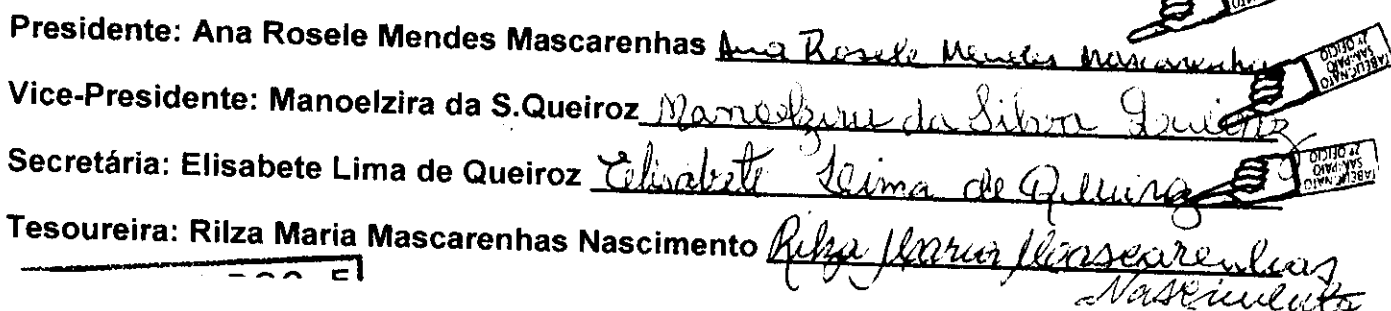 Presidente: Ana Rosele Mendes Mascarenhas Ana Rosele Mendes Mascarenhas
Vice-Presidente: Manoelzira da S.Queiroz Manoelzira da Silva Queiroz
Secretária: Elisabete Lima de Queiroz Elisabete Lima de Queiroz
Tesoureira: Rilza Maria Mascarenhas Nascimento Rilza Maria Mascarenhas
Nascimento
TABELIONATO
2º OFICIO
TABELIONATO
2º OFICIO